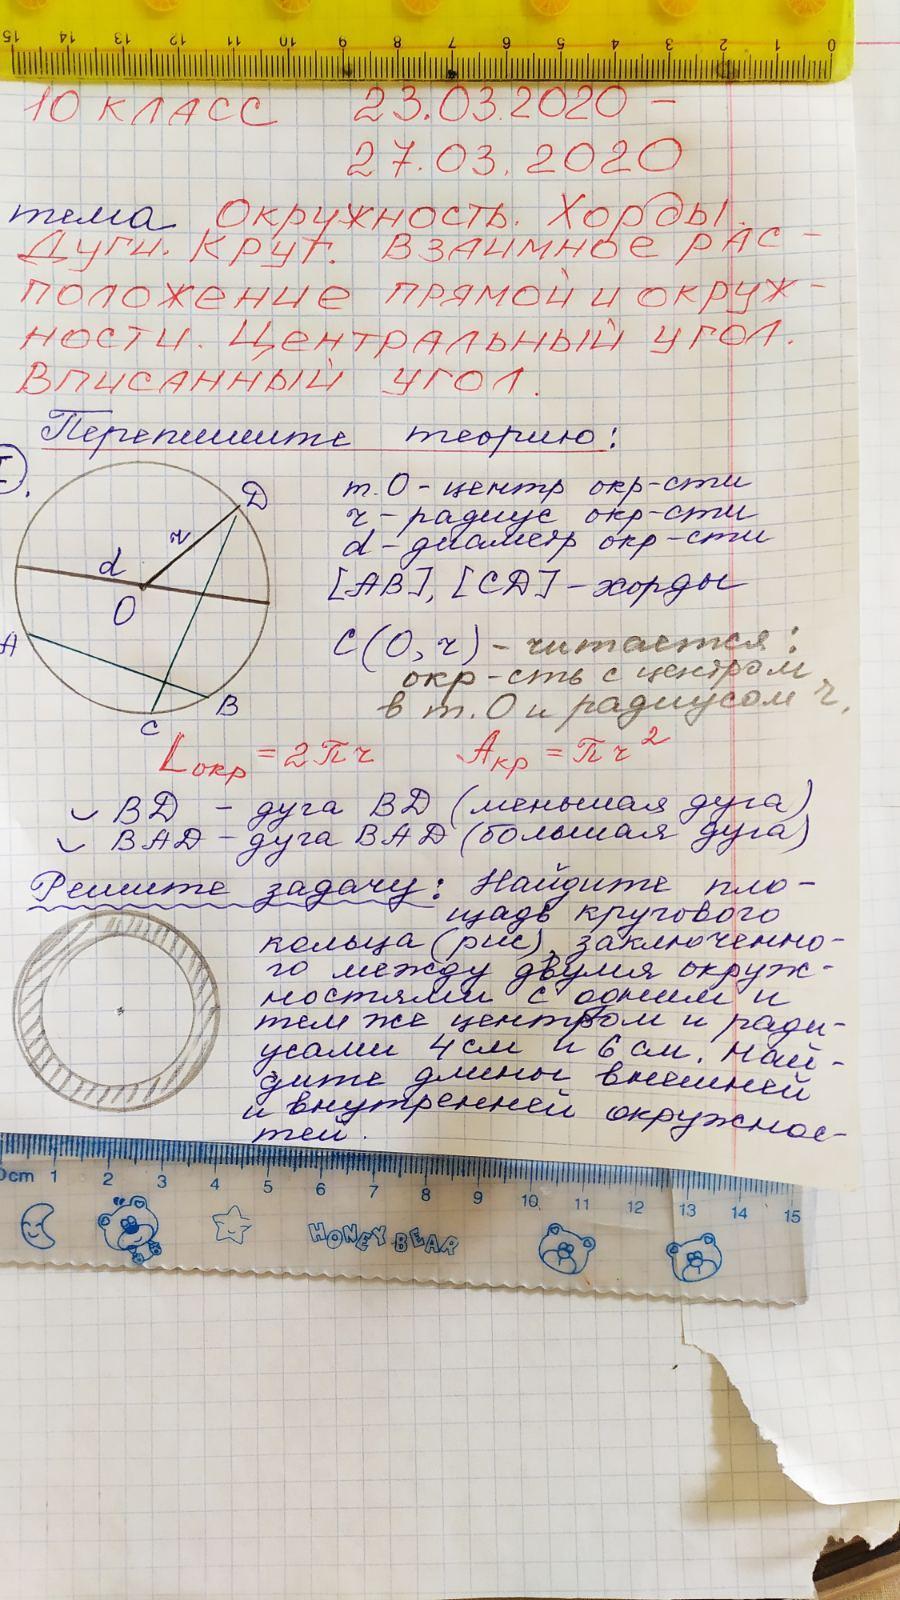 15 14 13 12 11 10 9 8 7 6 5 4 3 2 1 0
10 класс 23.03.2020 -
27.03.2020
тема Окружность. Хорды.
Дуги. Круг. Взаимное рас-
положение прямой и окруж-
ности. Центральный угол.
Вписанный угол.
Перепишите теорию:
I.
D
r
d
O
A
B
C
т.О - центр окр-сти
r - радиус окр-сти
d - диаметр окр-сти
[AB], [CD] - хорды
C(O, r) - читается:
окр-сть с центром
в т.О и радиусом r.
Lокр = 2πr Aкр = πr²
◡ BD - дуга BD (меньшая дуга)
◡ BAD - дуга BAD (большая дуга)
Решите задачу: Найдите пло-
щадь кругового
кольца (рис), заключенно-
го между двумя окруж-
ностями с одним и
тем же центром и ради-
усами 4 см и 6 см. Най-
дите длины внешней
и внутренней окружнос-
тей.
0cm 1 2 3 4 5 6 7 8 9 10 11 12 13 14 15
HONEY BEAR